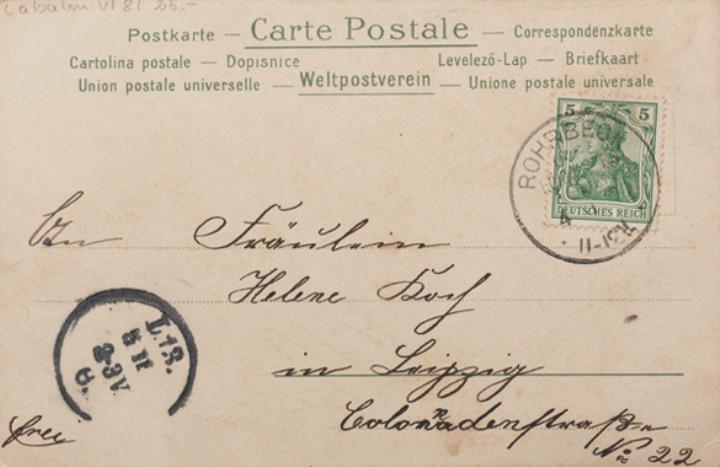 Postkarte — Carte Postale — Correspondenzkarte
Cartolina postale — Dopisnice Levelező-Lap — Briefkaart
Union postale universelle — Weltpostverein — Unione postale universale
5 5
DEUTSCHES REICH
ROHRBECK
An Fräulein
Helene Koch
in Leipzig
Colonnadenstraße
No 22
L.13.
frei